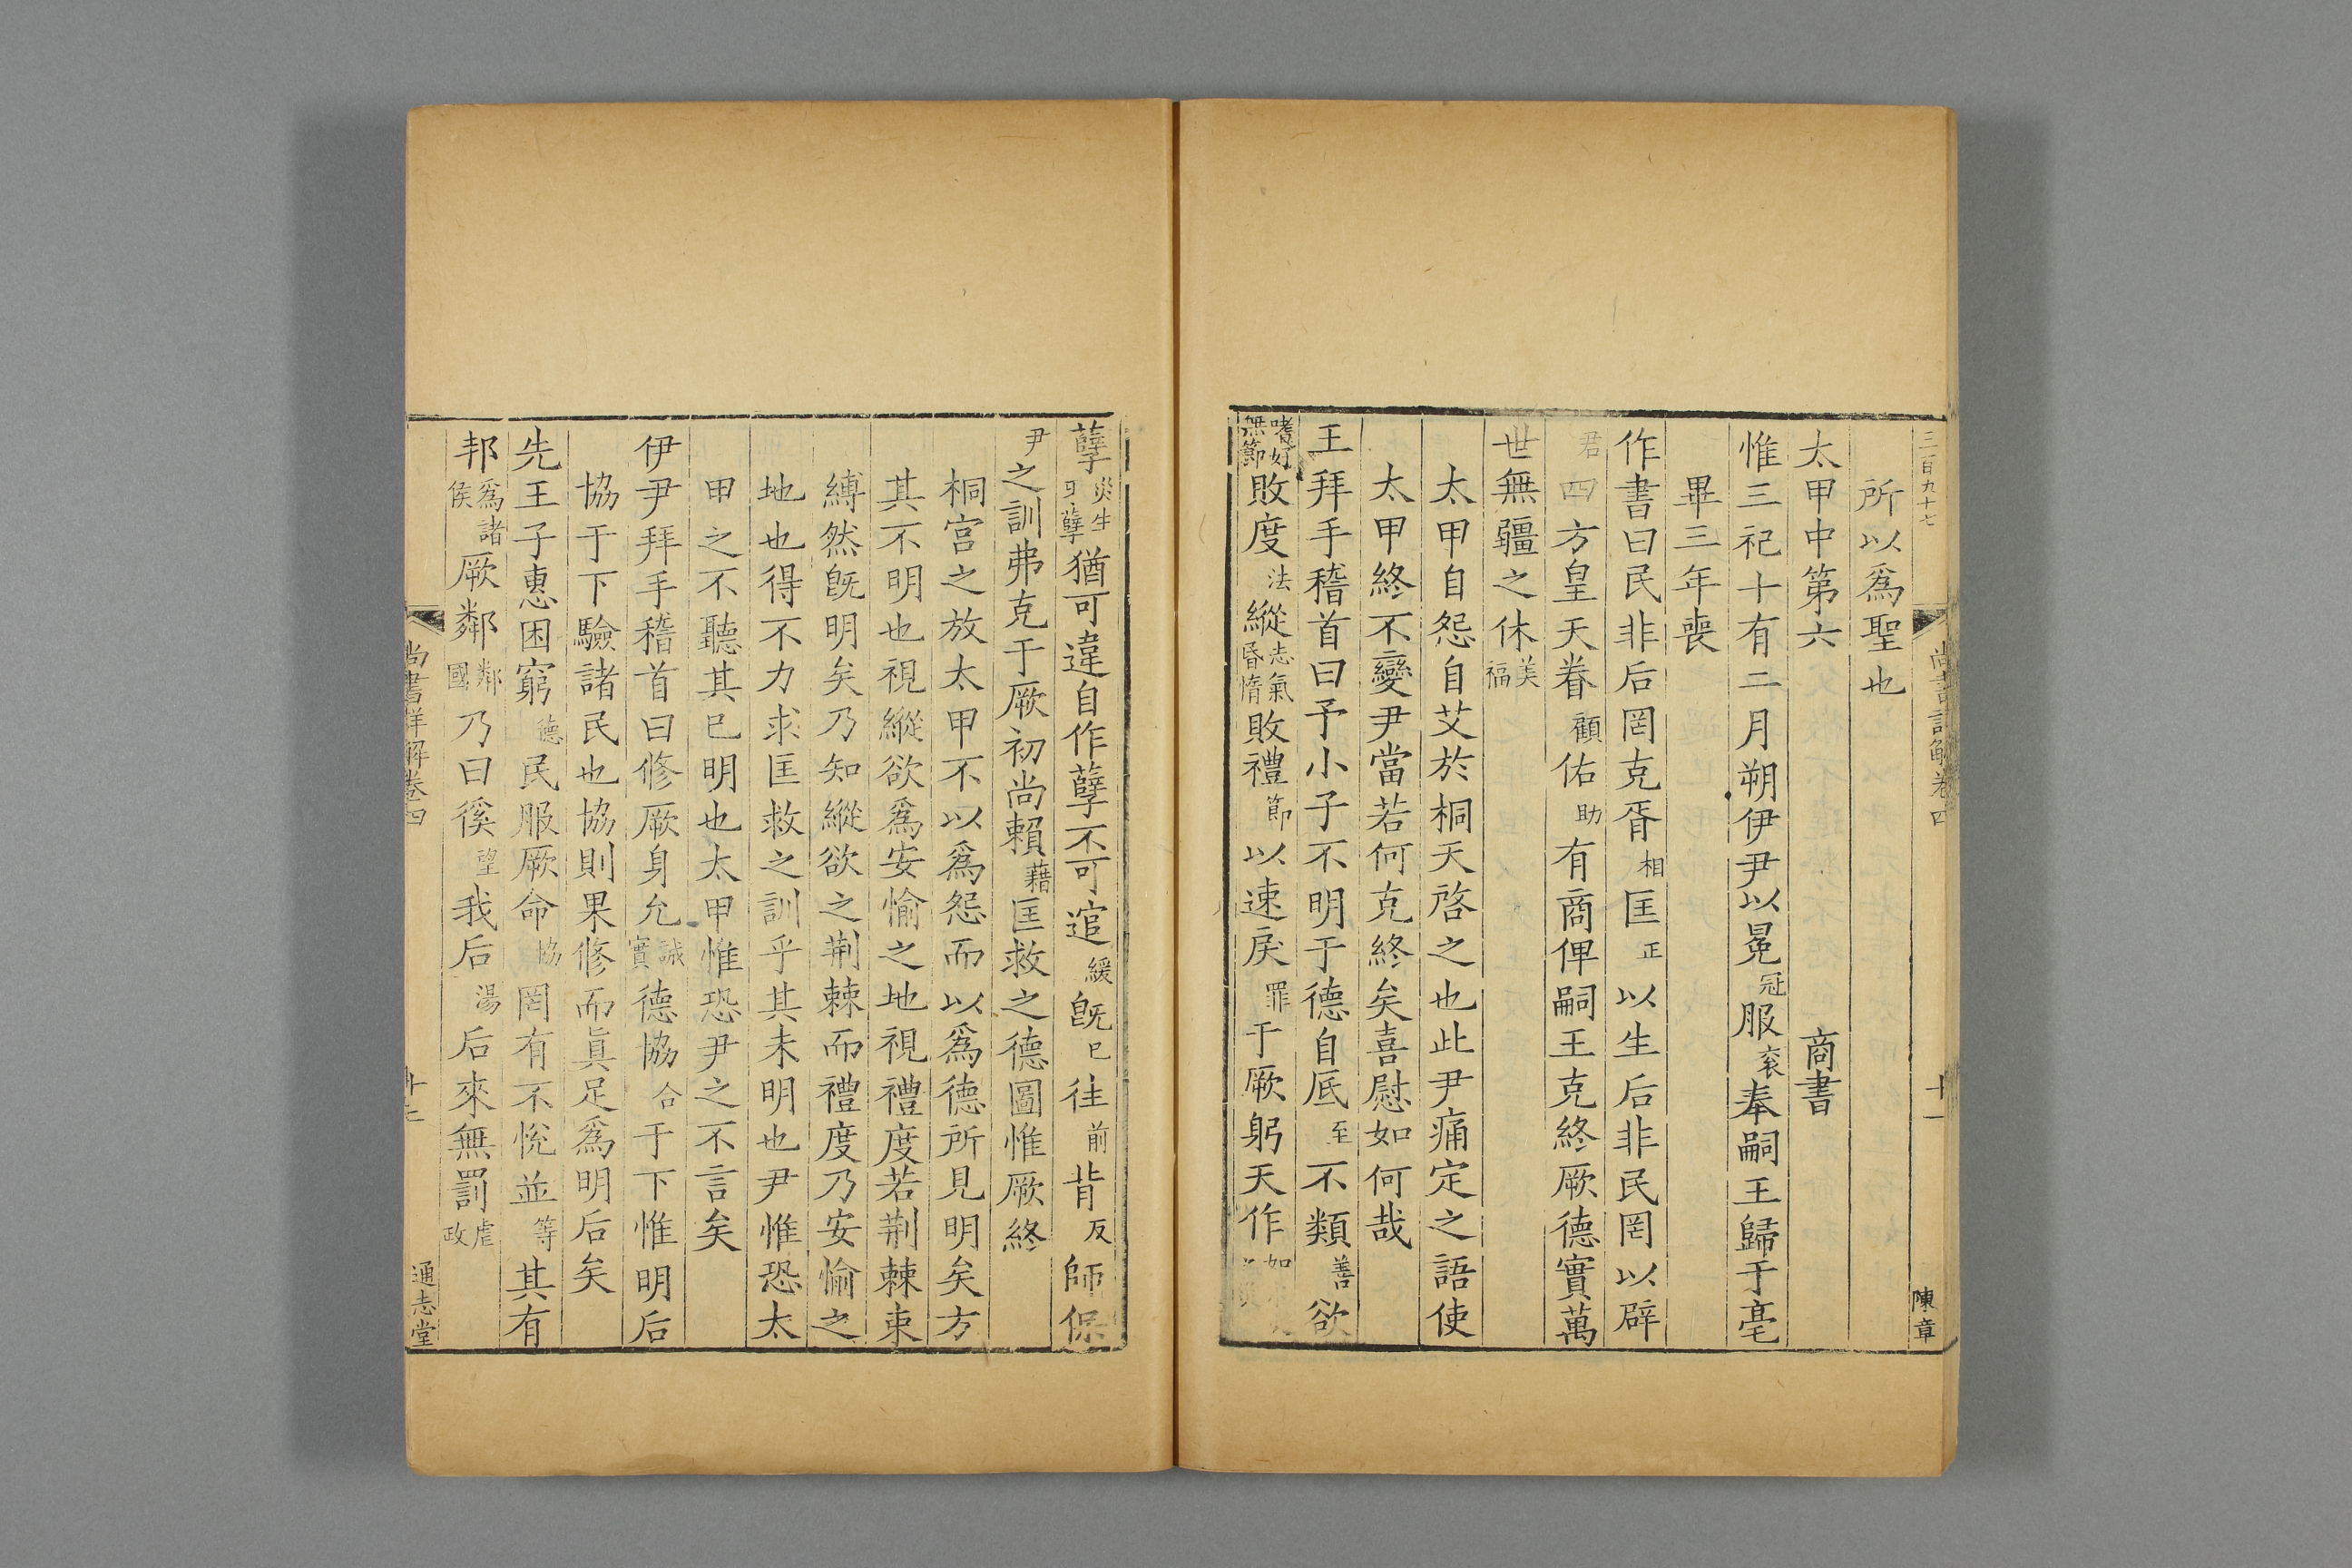 三百九十七
尚書詳解卷四
十一
陳章
所以爲聖也
太甲中第六 商書
惟三祀十有二月朔伊尹以冕冠服衮奉嗣王歸于亳
畢三年喪
作書曰民非后罔克胥相匡正以生后非民罔以辟
君四方皇天眷顧佑助有商俾嗣王克終厥德實萬
世無疆之休美福
太甲自怨自艾於桐天啓之也此尹痛定之語使
太甲終不變尹當若何克終矣喜慰如何哉
王拜手稽首曰予小子不明于德自底至不類善欲
嗜好無節敗度法縱志氣昏惰敗禮節以速戾罪于厥躬天作如
孽災生曰孽猶可違自作孽不可逭緩旣已往前背反師保
尹之訓弗克于厥初尚賴藉匡救之德圖惟厥終
桐宮之放太甲不以爲怨而以爲德所見明矣方
其不明也視縱欲爲安愉之地視禮度若荆棘束
縛然旣明矣乃知縱欲之荆棘而禮度乃安愉之
地也得不力求匡救之訓乎其未明也尹惟恐太
甲之不聽其已明也太甲惟恐尹之不言矣
伊尹拜手稽首曰修厥身允誠實德協合于下惟明后
協于下驗諸民也協則果修而眞足爲明后矣
先王子惠困窮德民服厥命協罔有不悅並等其有
邦爲諸侯厥鄰鄰國乃曰徯望我后湯后來無罰虐政
尚書詳解卷四
通志堂